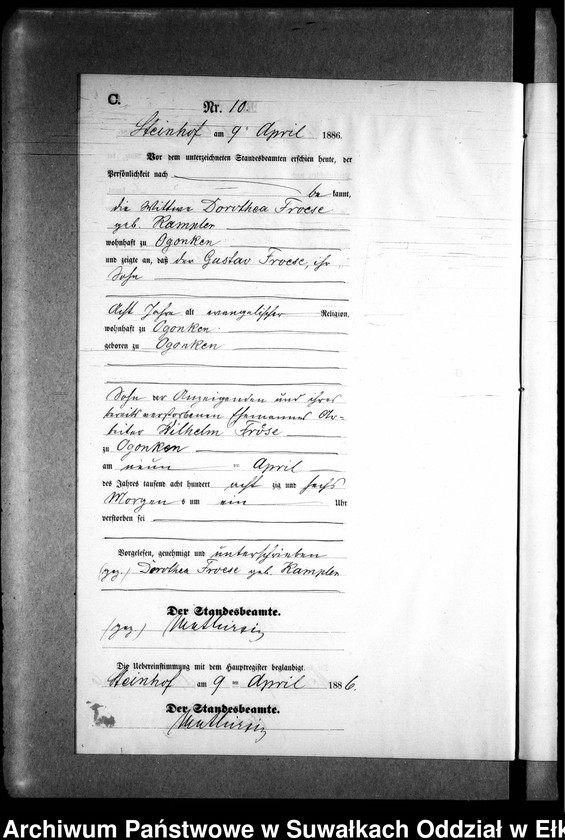 C.
Nr. 10.
Steinhof am 9 April 1886.
Vor dem unterzeichneten Standesbeamten erschien heute, der
Persönlichkeit nach
bekannt,
die Wittwe Dorothea Froese
geb. Kampler
wohnhaft zu Ogonken
und zeigte an, daß der Gustav Froese, ihr
Sohn
Acht Jahre alt evangelischer Religion,
wohnhaft zu Ogonken
geboren zu Ogonken
Sohn der Anzeigenden und ihres
bereits verstorbenen Ehemannes Ar-
beiter Wilhelm Fröse
zu Ogonken
am neun = April
des Jahres tausend acht hundert acht zig und sechs
Morgens um ein Uhr
verstorben sei
Vorgelesen, genehmigt und unterschrieben
(gez.) Dorothea Froese geb. Kampler
Der Standesbeamte.
(gez)
Die Uebereinstimmung mit dem Hauptregister beglaubigt.
Steinhof am 9 = April 1886.
Der Standesbeamte.
Archiwum Państwowe w Suwałkach Oddział w Ełk